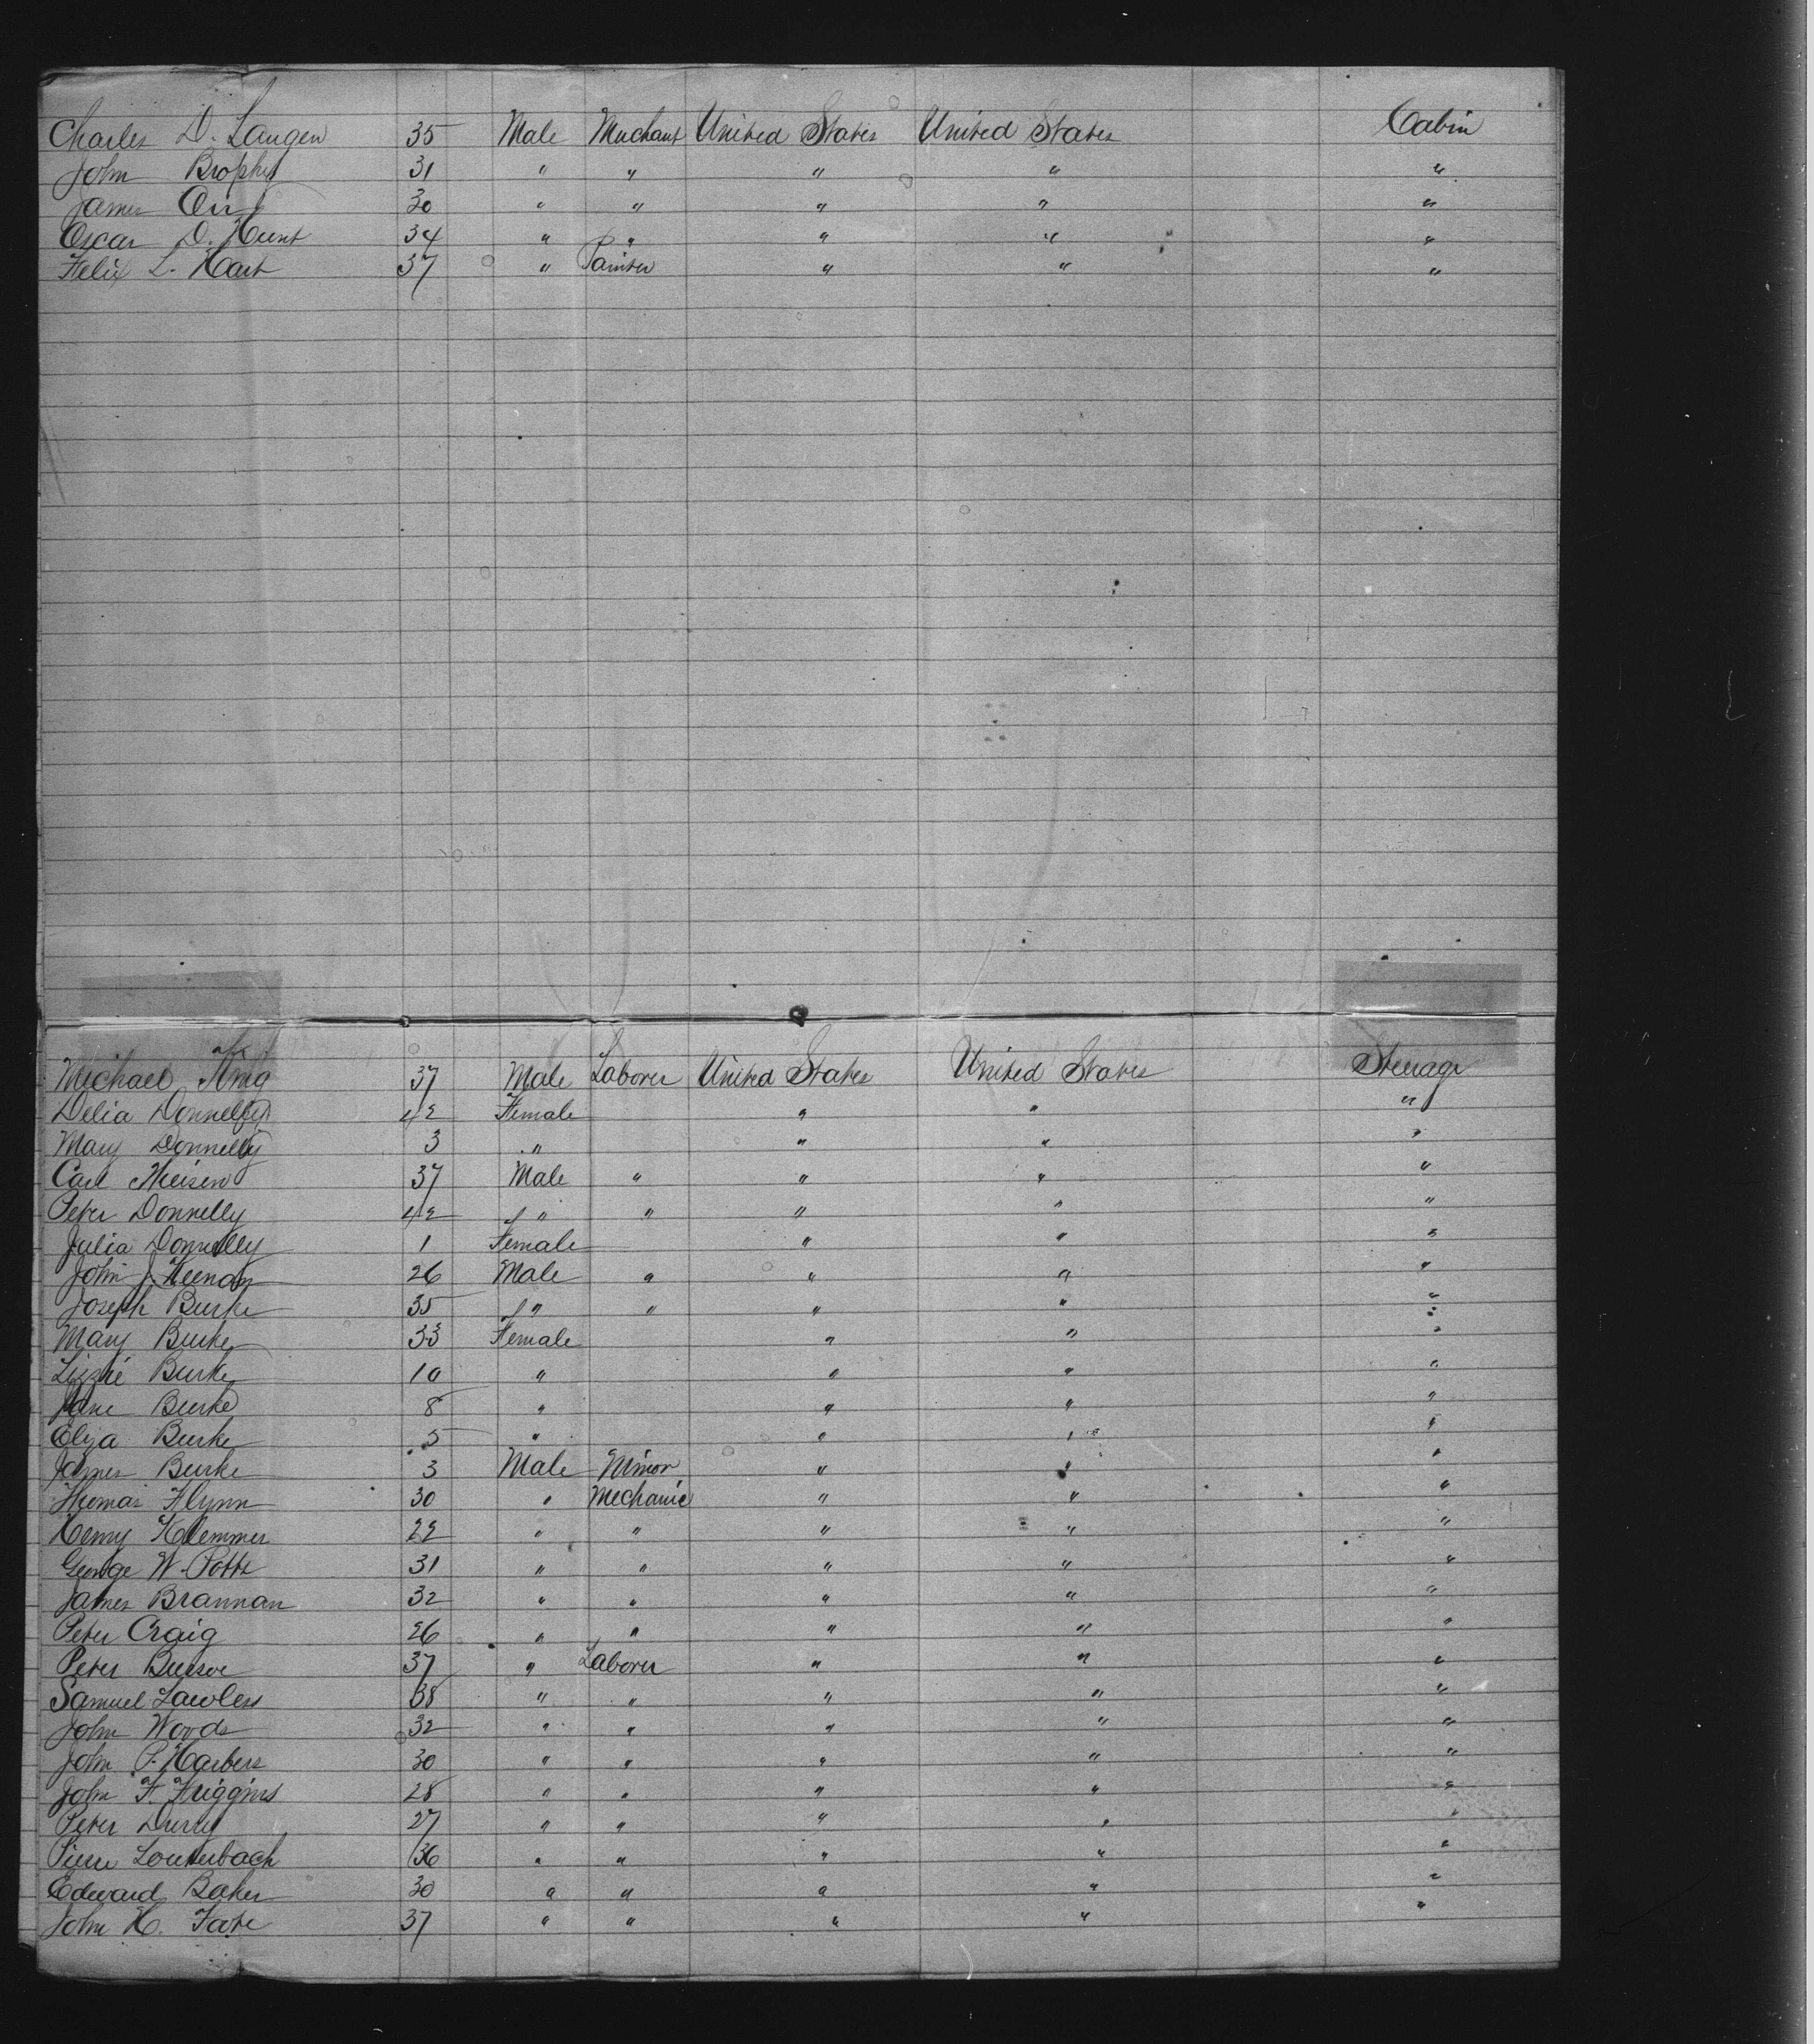 Charles D. Langen 35 Male Merchant United States United States Cabin
John Brophy 31 " " " " "
James Orr 30 " " " " "
Oscar D. Hunt 34 " " " " "
Felix L. Hart 37 " Painter " " "
Michael King 37 Male Laborer United States United States Steerage
Delia Donnelly 42 Female " " "
Mary Donnelly 3 " " " "
Carl 37 Male " " " "
Peter Donnelly 42 " " " " "
Julia Donnelly 1 Female " " "
John J. Keenan 26 Male " " " "
Joseph Burke 35 " " " " "
Mary Burke 33 Female " " "
Lizzie Burke 10 " " " "
Jane Burke 8 " " " "
Eliza Burke 5 " " " "
James Burke 3 Male Minor " " "
Thomas Flynn 30 " Mechanic " " "
Henry Klemmer 22 " " " " "
George W. Potts 31 " " " " "
James Brannan 32 " " " " "
Peter Craig 26 " " " " "
Peter 37 " Laborer " " "
Samuel Lawless 38 " " " " "
John Woods 32 " " " " "
John P. Harbers 30 " " " " "
John F. Friggins 28 " " " " "
Peter 27 " " " " "
Pierre Louterbach 36 " " " " "
Edward Baker 30 " " " " "
John H. Tate 37 " " " " "